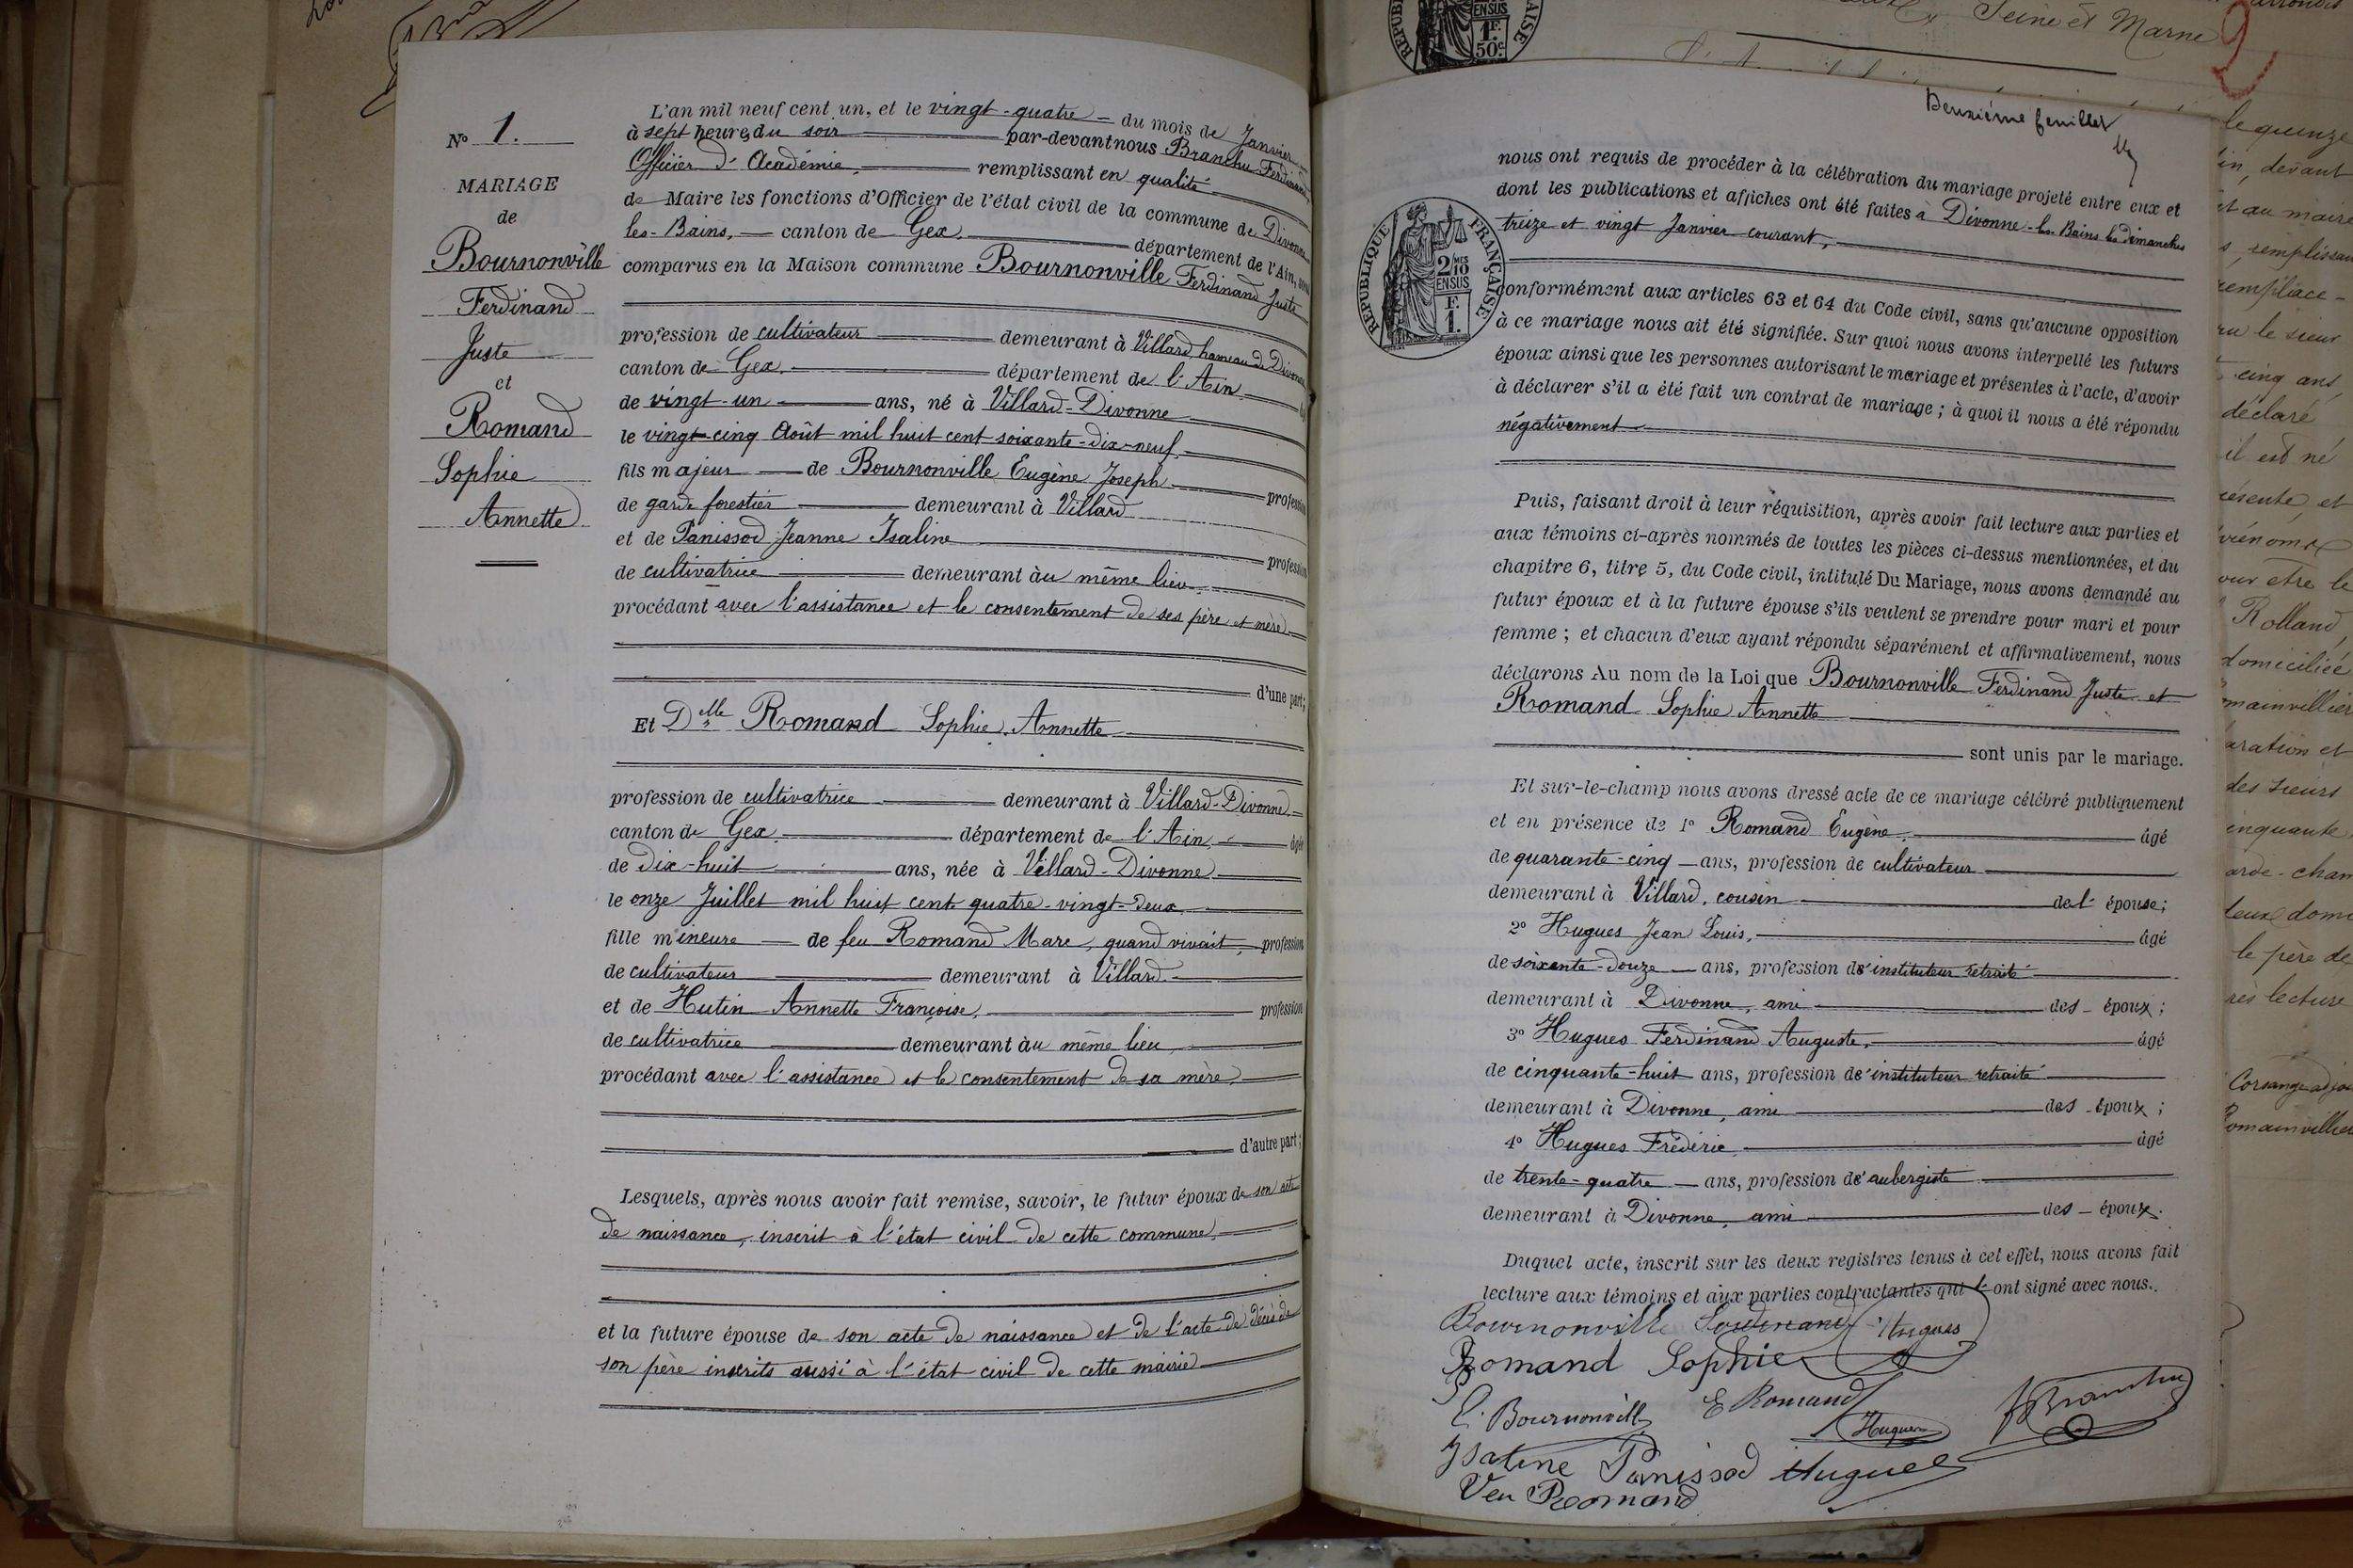 N° 1.
MARIAGE
de
Bournonville
Ferdinand
Juste
et
Romand
Sophie
Annette
L'an mil neuf cent un, et le vingt-quatre du mois de Janvier
à sept heures du soir par-devant nous Branchu Ferdinand
Officier d'Académie, remplissant en qualité
de Maire les fonctions d'Officier de l'état civil de la commune de Divonne
les-Bains, canton de Gex, département de l'Ain,
comparus en la Maison commune Bournonville Ferdinand Juste
profession de cultivateur demeurant à Villard hameau de Divonne
canton de Gex, département de l'Ain
de vingt-un ans, né à Villard-Divonne
le vingt-cinq Août mil huit cent soixante-dix-neuf,
fils majeur de Bournonville Eugène Joseph profession
de garde forestier demeurant à Villard
et de Panissod Jeanne Isaline profession
de cultivatrice demeurant àu même lieu,
procédant avec l'assistance et le consentement de ses père et mère
d'une part;
Et Delle Romand Sophie, Annette
profession de cultivatrice demeurant à Villard-Divonne
canton de Gex, département de l'Ain, âgée
de dix-huit ans, née à Villard-Divonne
le onze Juillet mil huit cent quatre-vingt-deux
fille mineure de feu Romand Marc, quand vivait, profession
de cultivateur demeurant à Villard
et de Hutin Annette Françoise, profession
de cultivatrice demeurant àu même lieu,
procédant avec l'assistance et le consentement de sa mère,
d'autre part;
Lesquels, après nous avoir fait remise, savoir, le futur époux de son acte
de naissance, inscrit à l'état civil de cette commune,
et la future épouse de son acte de naissance et de l'acte de décès de
son père inscrits aussi à l'état civil de cette mairie
ENSUS
1F.
50c.
Seine et Marne
2
Deuxième feuillet
nous ont requis de procéder à la célébration du mariage projeté entre eux et
dont les publications et affiches ont été faites à Divonne-les-Bains les dimanches
treize et vingt Janvier courant,
RÉPUBLIQUE FRANÇAISE
2/10 MES
EN SUS
F.
1.
conformément aux articles 63 et 64 du Code civil, sans qu'aucune opposition
à ce mariage nous ait été signifiée. Sur quoi nous avons interpellé les futurs
époux ainsi que les personnes autorisant le mariage et présentes à l'acte, d'avoir
à déclarer s'il a été fait un contrat de mariage; à quoi il nous a été répondu
négativement
Puis, faisant droit à leur réquisition, après avoir fait lecture aux parties et
aux témoins ci-après nommés de toutes les pièces ci-dessus mentionnées, et du
chapitre 6, titre 5, du Code civil, intitulé Du Mariage, nous avons demandé au
futur époux et à la future épouse s'ils veulent se prendre pour mari et pour
femme; et chacun d'eux ayant répondu séparément et affirmativement, nous
déclarons Au nom de la Loi que Bournonville Ferdinand Juste et
Romand Sophie Annette
sont unis par le mariage.
Et sur-le-champ nous avons dressé acte de ce mariage célébré publiquement
et en présence de 1° Romand Eugène, âgé
de quarante-cinq ans, profession de cultivateur
demeurant à Villard, cousin de l'épouse;
2° Hugues Jean Louis, âgé
de soixante-douze ans, profession d'instituteur retraité
demeurant à Divonne, ami des époux;
3° Hugues Ferdinand Auguste, âgé
de cinquante-huit ans, profession d'instituteur retraité
demeurant à Divonne, ami des époux;
4° Hugues Frédéric, âgé
de trente-quatre ans, profession d'aubergiste
demeurant à Divonne, ami des époux.
Duquel acte, inscrit sur les deux registres tenus à cet effet, nous avons fait
lecture aux témoins et aux parties contractantes qui l'ont signé avec nous.
Bournonville Ferdinand Hugues
Romand Sophie
E. Bournonville E Romand Hugues FBranchu
Isaline Panissod Hugues
Veu Romand
le quinze
in, devant
et au maire
s, remplissan
remplace-
ru le sieur
cinq ans,
déclaré
il est né
résente, et
prénoms
our être le
Rolland,
domiciliée
omainvillier
aration et
des sieurs
inquante
arde-cham
deux domi
le père de
rès lecture
Corsange adjoi
Romainvillier